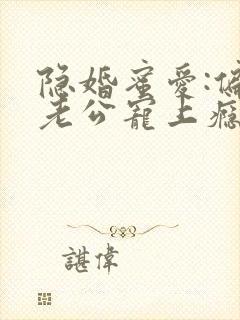 隐婚蜜爱:偏
老公宠上瘾
諶偉